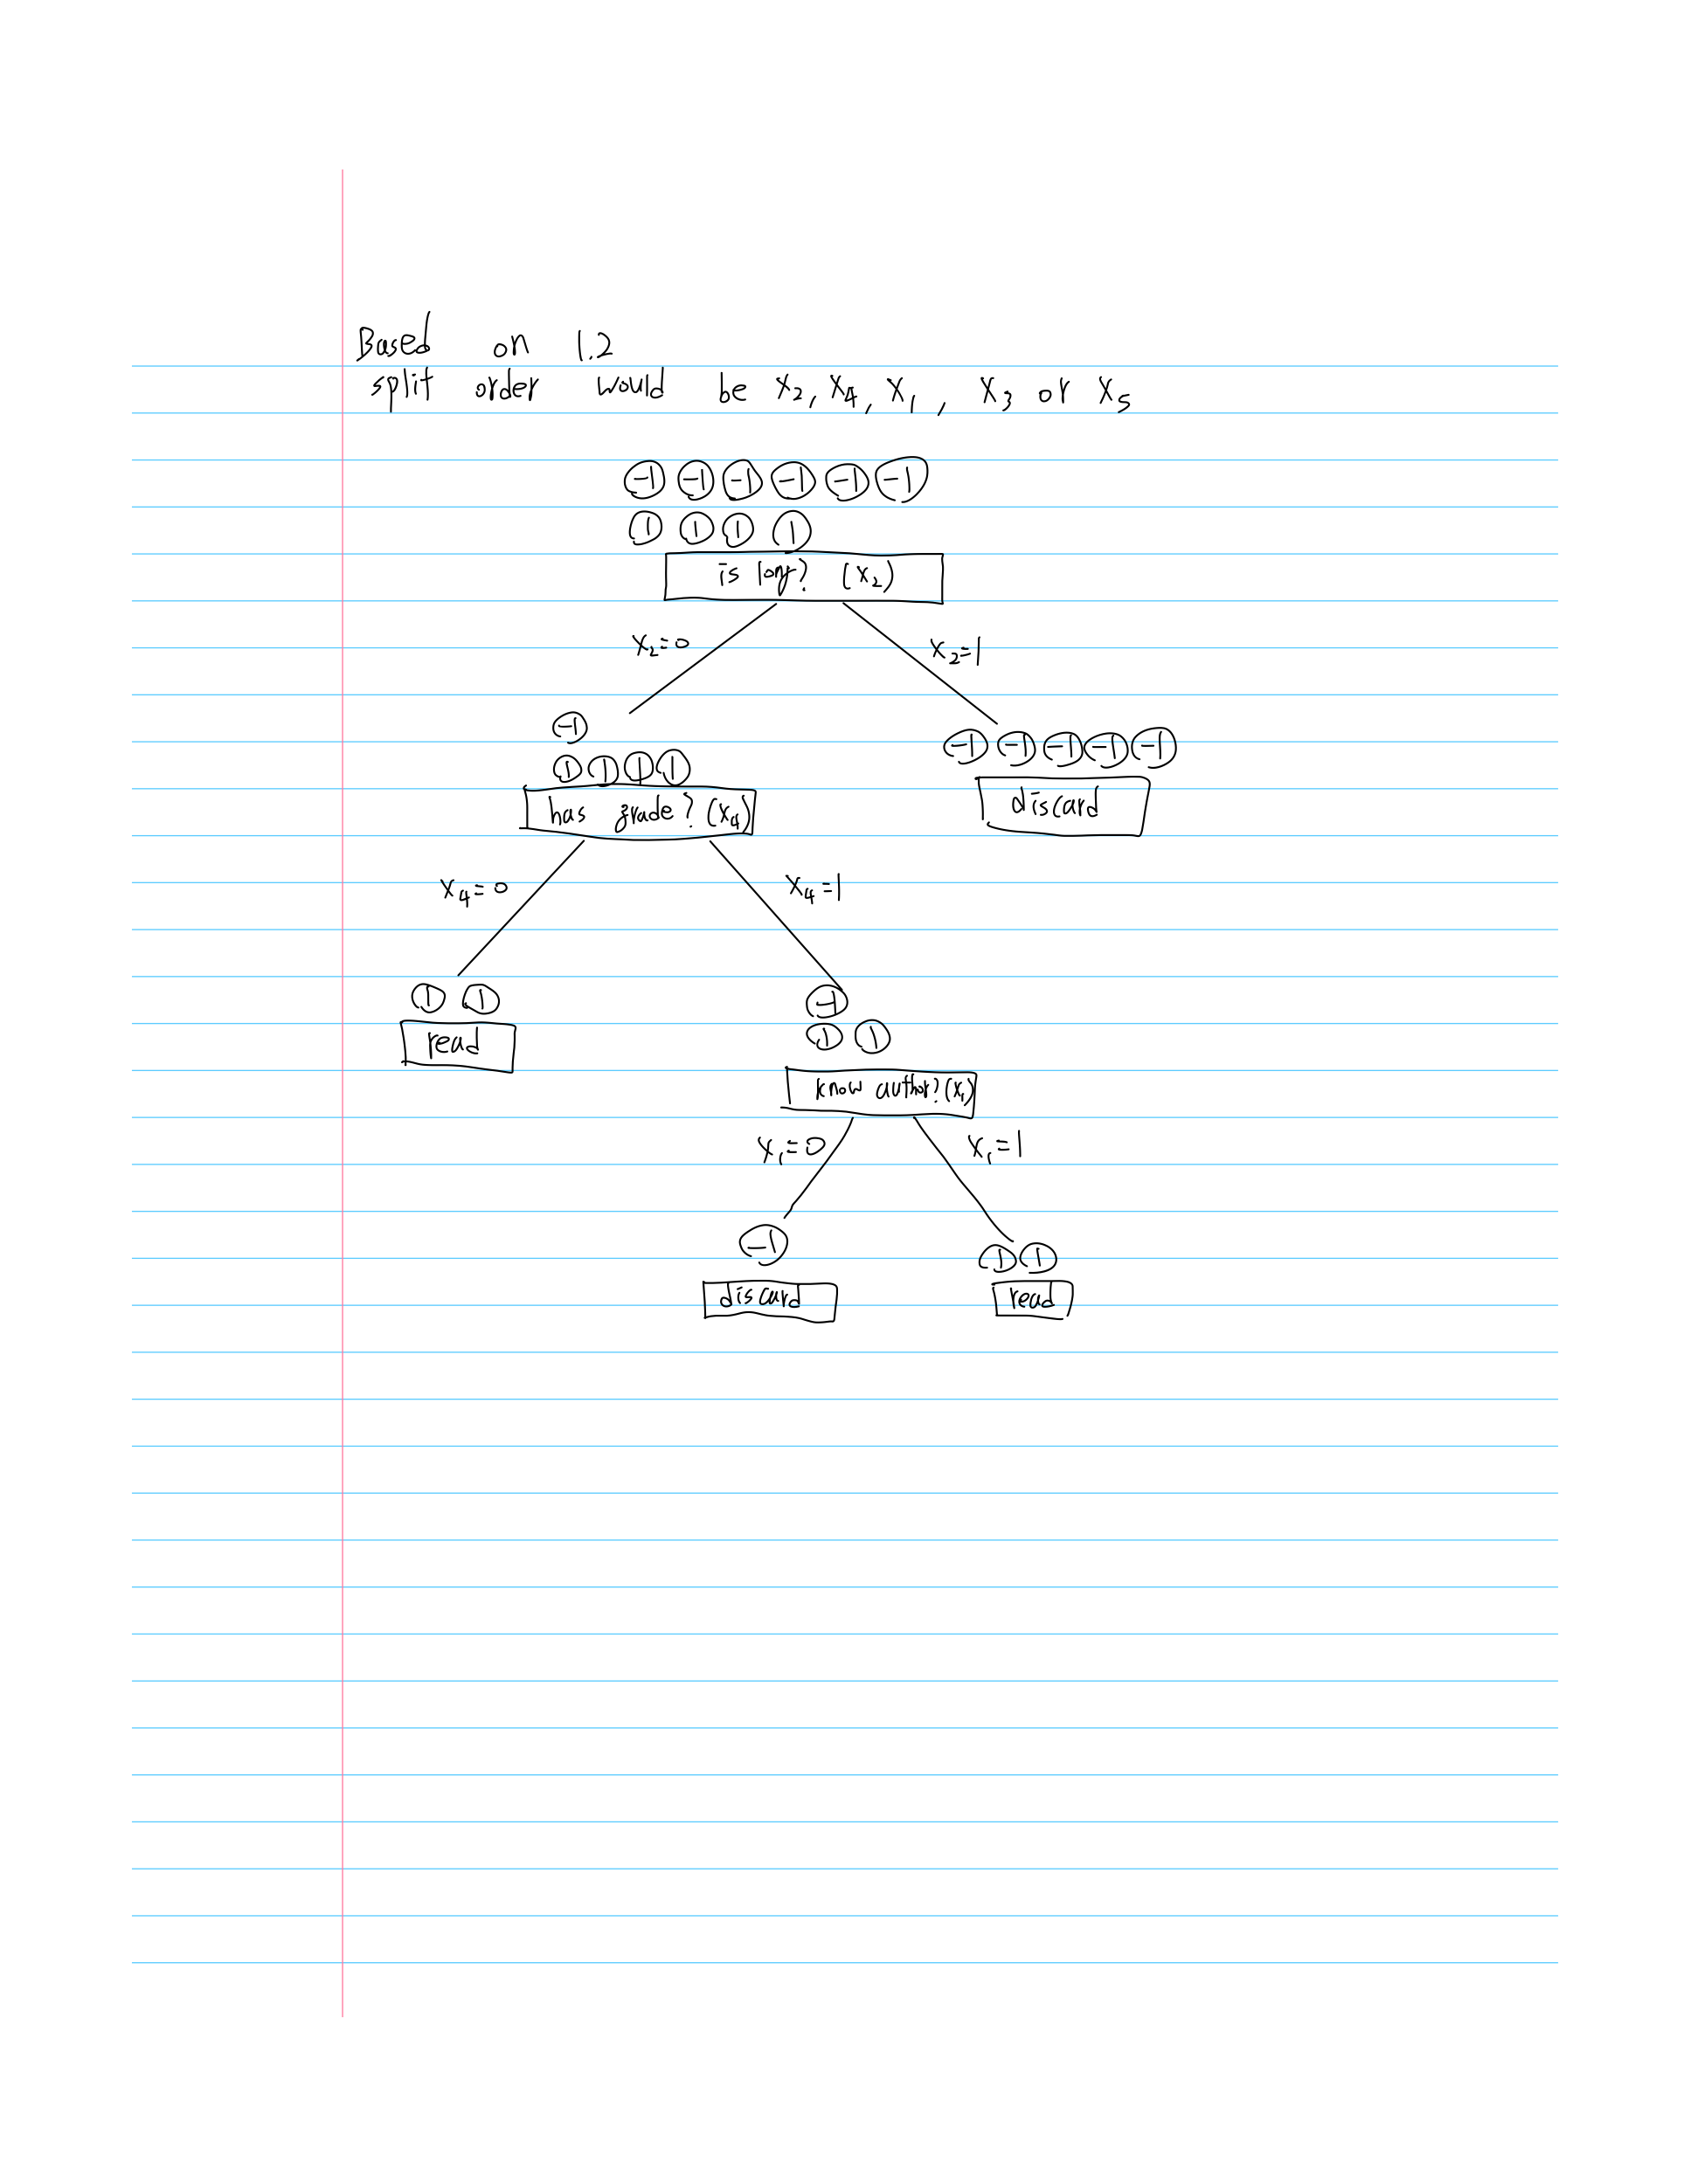 Based on 1.2
split order would be x₂, x₄, x₁, x₃ or x₅
-1 -1 -1 -1 -1 -1
1 1 1 1
is long? (x₂)
x₂=0 x₂=1
-1
-1 -1 -1 -1 -1
1 1 1 1
has grade? (x₄)
discard
x₄=0 x₄=1
1 1
-1
1 1
read
know author? (x₁)
x₁=0 x₁=1
-1
1 1
discard
read